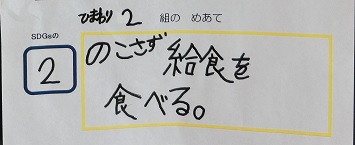 ひまわり 2 組の めあて
SDGsの
2
のこさず 給食を
食べる。